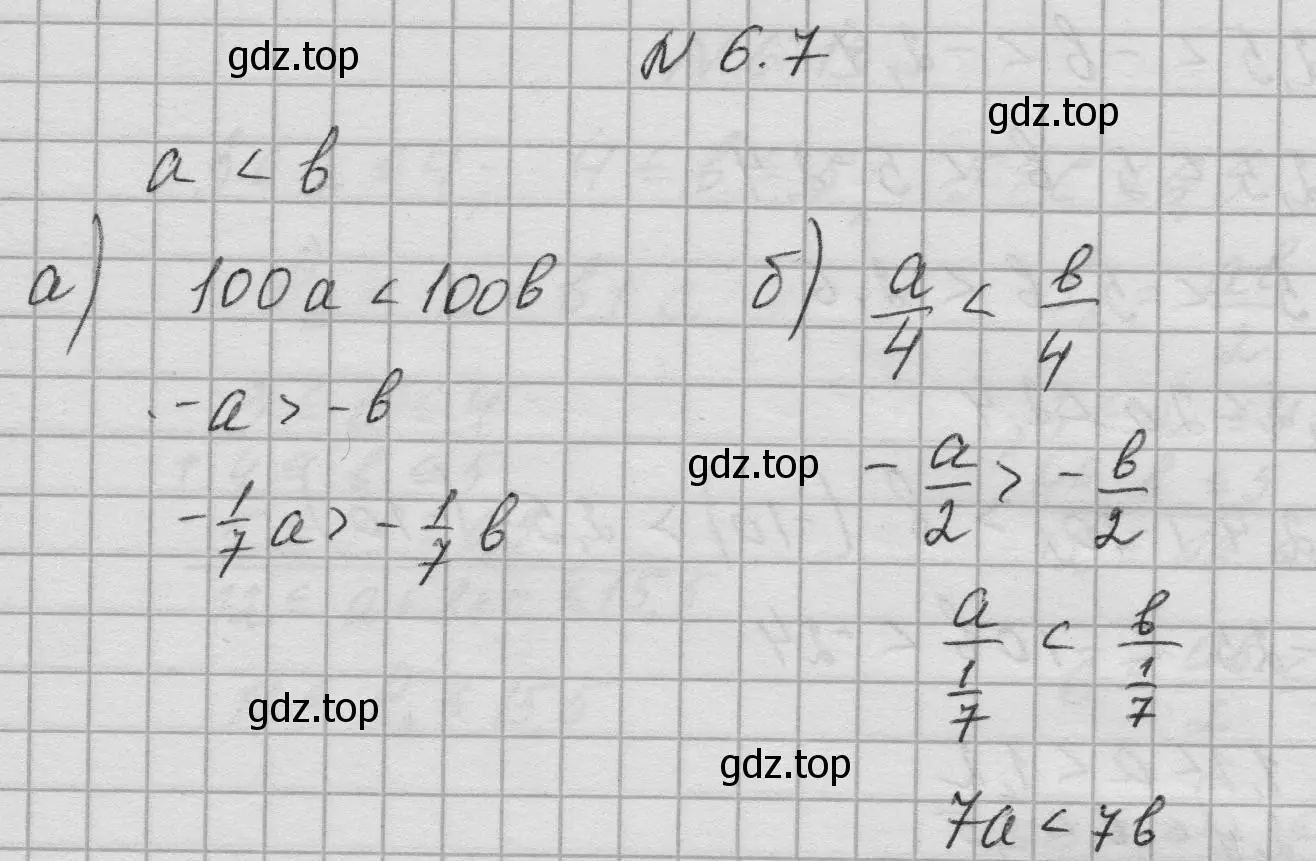 gdz.top
N 6.7
gdz.top
a < b
а) 100a < 100b
-a > -b
-1/7 a > -1/7 b
б) a/4 < b/4
gdz.top
-a/2 > -b/2
a/(1/7) < b/(1/7)
gdz.top
gdz.top
7a < 7b